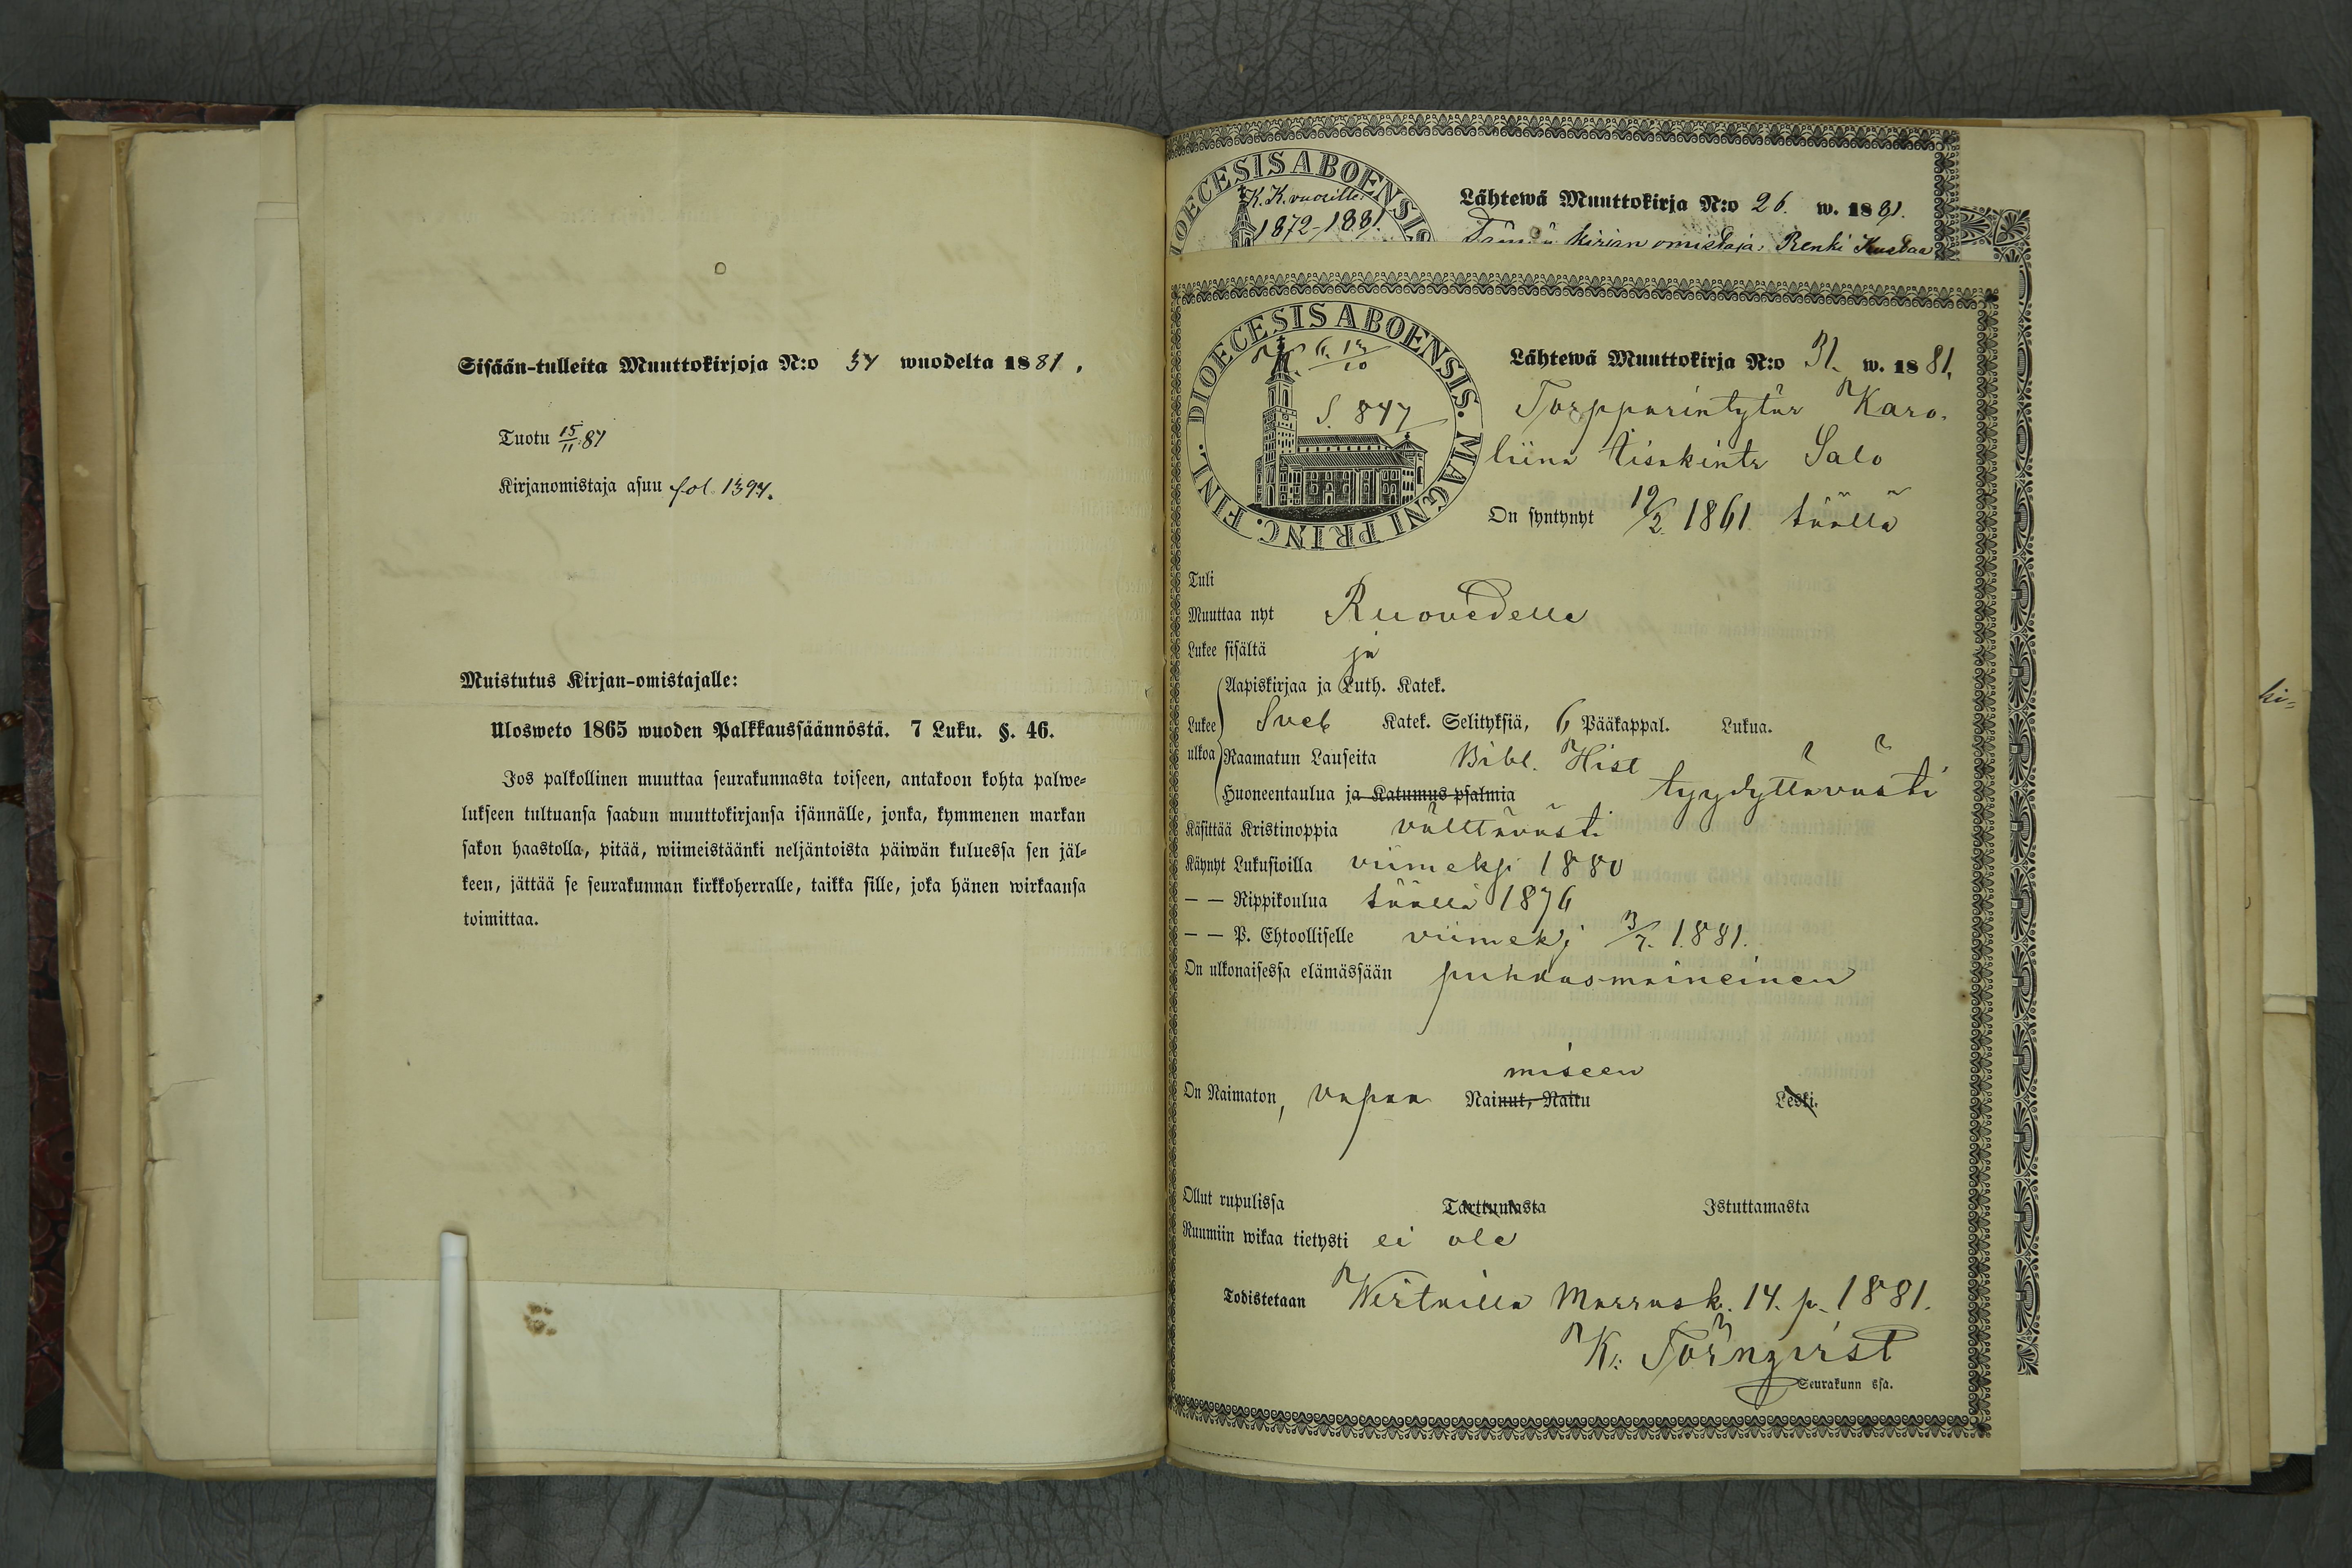 Sisään-tulleita Muuttokirjoja N:o 54 wuodelta 1881,
Tuotu 15/11 81
Kirjanomistaja asuu fol. 1397.
Muistutus Kirjan-omistajalle:
Ulosweto 1865 wuoden Palkkaussäännöstä. 7 Luku. §. 46.
Jos palkollinen muuttaa seurakunnasta toiseen, antakoon kohta palwe-
lukseen tultuansa saadun muuttokirjansa isännälle, jonka, kymmenen markan
sakon haastolla, pitää, wiimeistäänki neljäntoista päiwän kuluessa sen jäl-
keen, jättää se seurakunnan kirkkoherralle, taikka sille, joka hänen wirkaansa
toimittaa.
DIOECESIS ABOENSIS
K. K. vuosille
1872-1881.
Lähtewä Muuttokirja N:o 26. w. 1881.
Tämän kirjan omistaja, Renki Kustaa
DIOECESIS ABOENSIS. MAGNI PRINC. FINL.
S. 847
Lähtewä Muuttokirja N:o 31. w. 1881.
Torpparintytär Karo-
liina Iisakintr Salo
On syntynyt 19/2 1861 täällä
Tuli
Muuttaa nyt Ruovedelle
Lukee sisältä ja
Lukee ulkoa
Aapiskirjaa ja Luth. Katek.
Sveb Katek. Selityksiä, 6 Pääkappal. Lukua.
Raamatun Lauseita Bibl. Hist
Huoneentaulua ja Katumus psalmia tyydyttävästi
Käsittää Kristinoppia välttävästi
Käynyt Lukusioilla viimeksi 1880
— — Rippikoulua täällä 1876
— — P. Ehtoolliselle viimeksi 3/7. 1881.
On ulkonaisessa elämässään puhdasmaineinen
On Naimaton, vapaa Nainut, Naitu Leski.
miseen
Ollut rupulissa Tarttumasta Istuttamasta
Ruumiin wikaa tietysti ei ole
Todistetaan Wirtailla Marrask. 14. p. 1881.
K. Törnqvist
Seurakunn ssa.
ki-